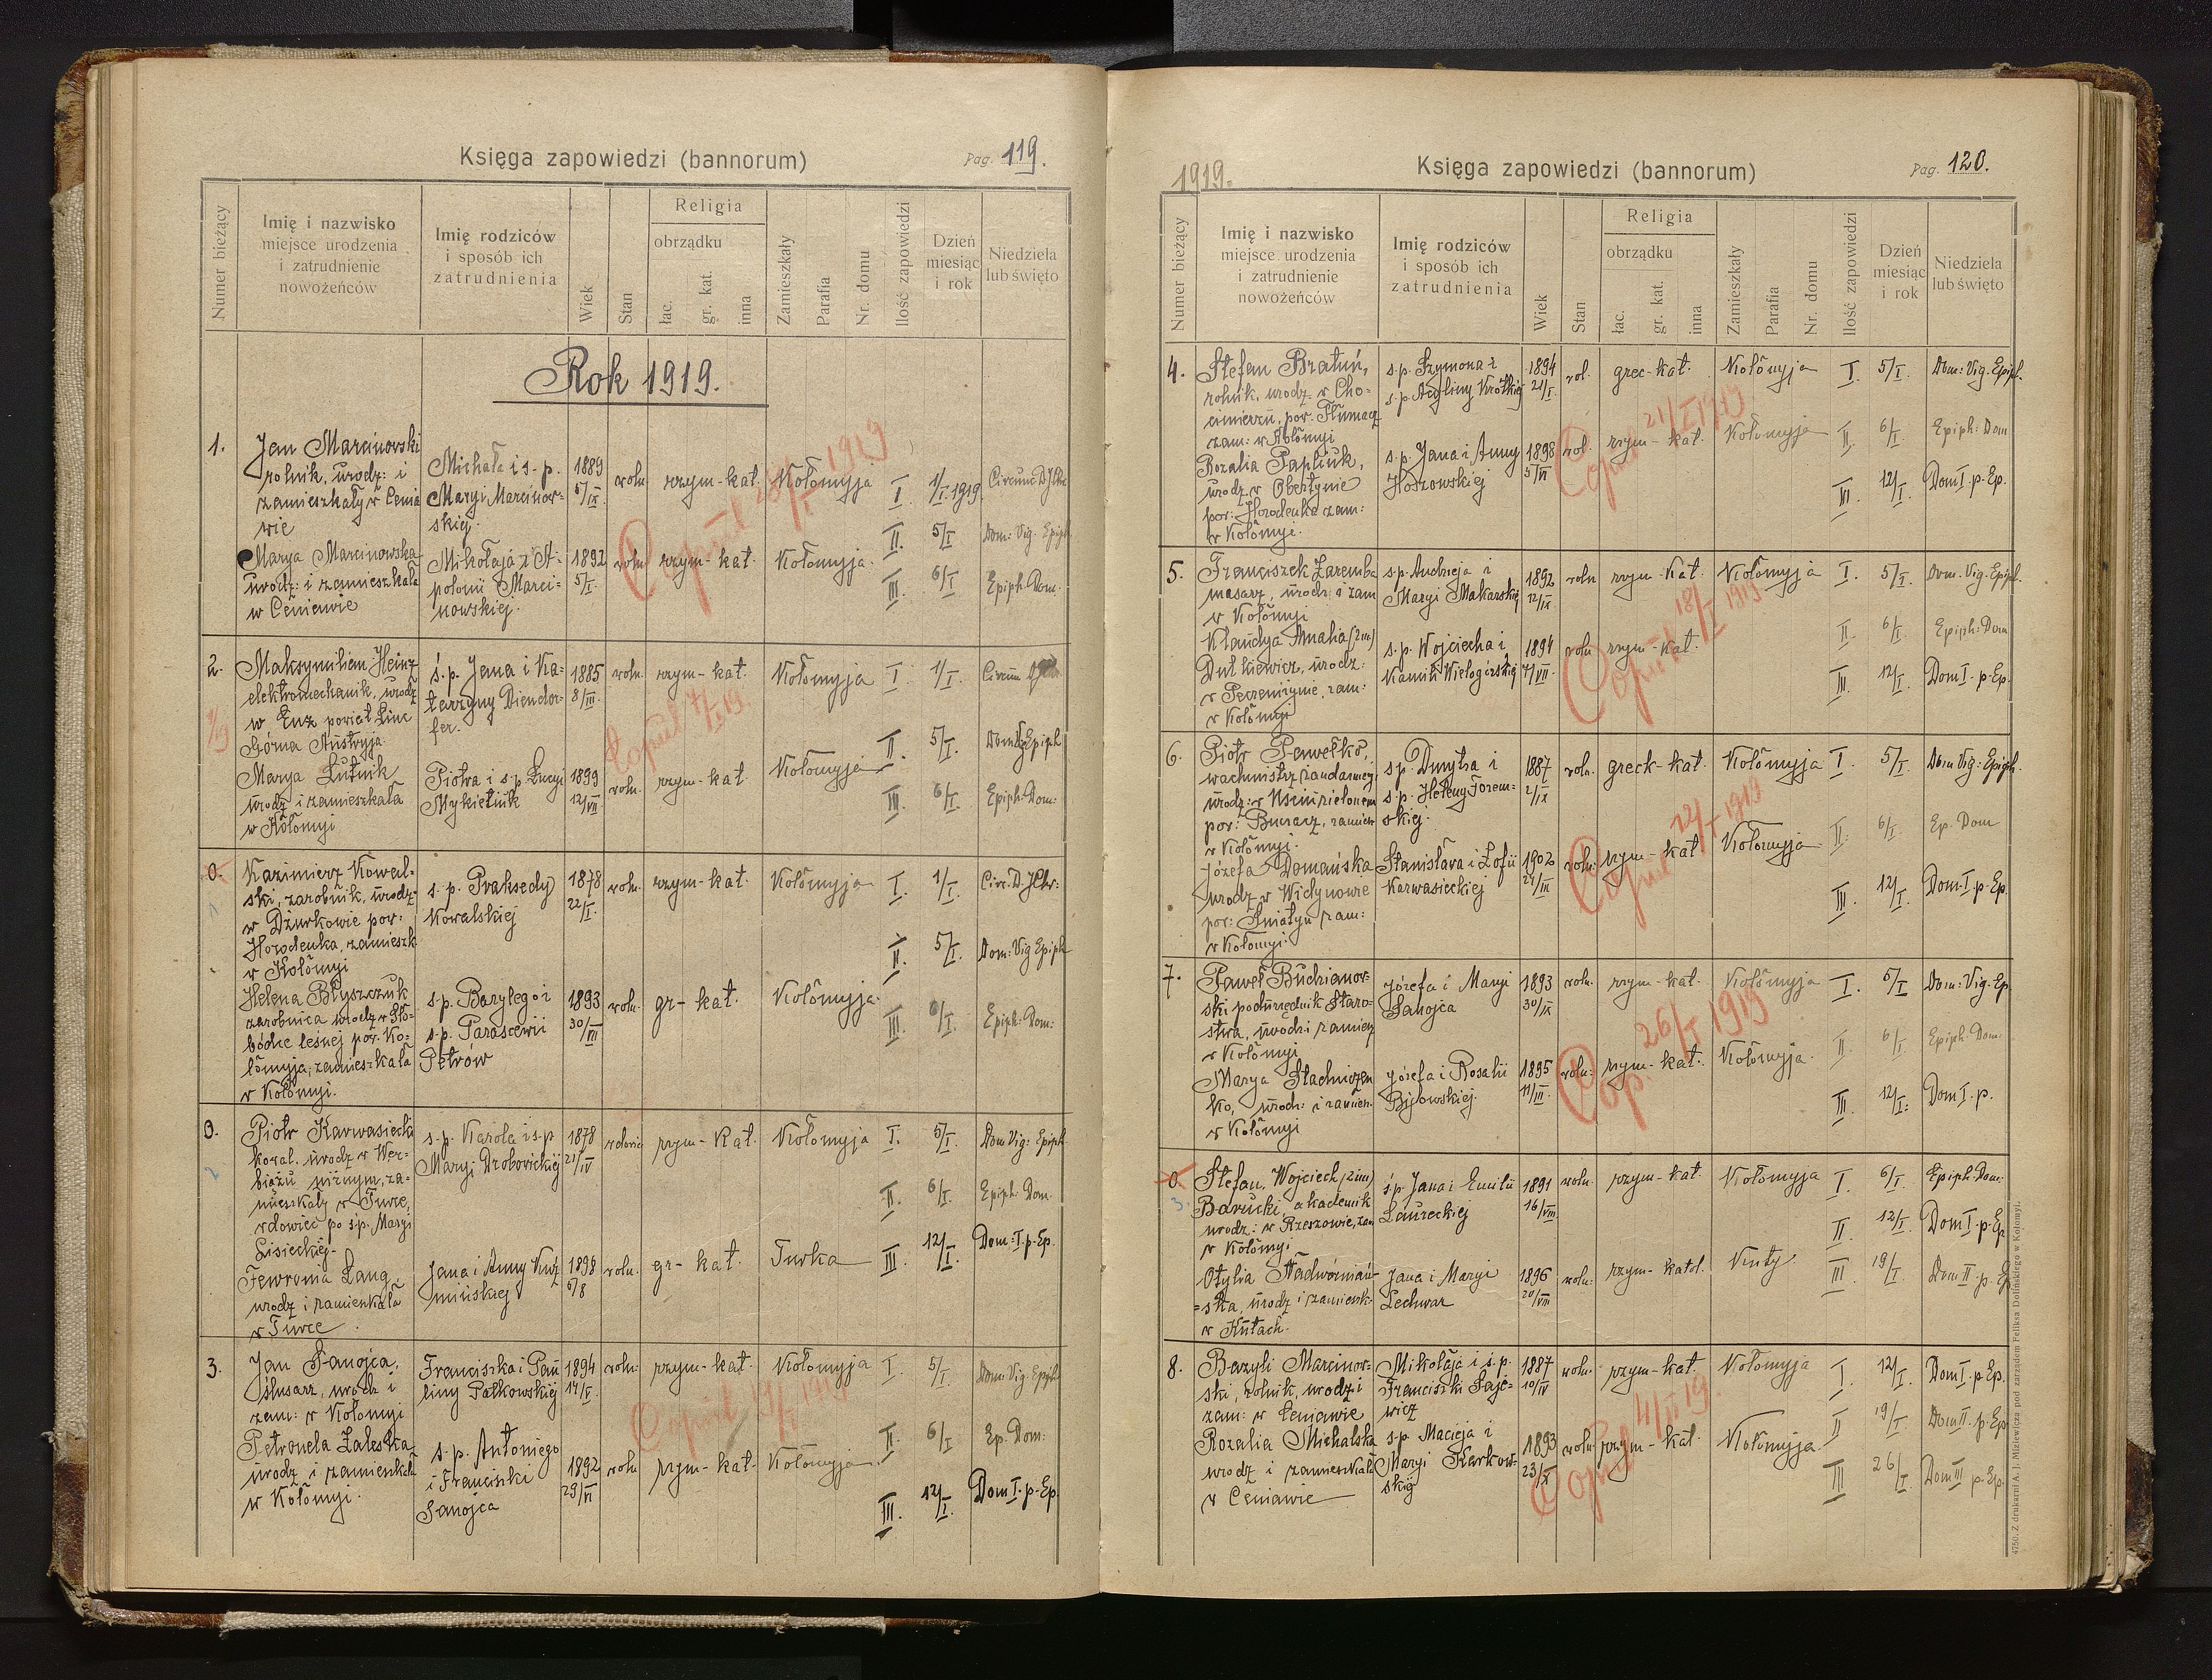 Księga zapowiedzi (bannorum)
Pag. 119.
Numer bieżący
Imię i nazwisko
miejsce urodzenia
i zatrudnienie
nowożeńców
Imię rodziców
i sposób ich
zatrudnienia
Wiek
Stan
Religia
obrządku
łac.
gr. kat.
inna
Zamieszkały
Parafia
Nr. domu
Ilość zapowiedzi
Dzień
miesiąc
i rok
Niedziela
lub święto
Rok 1919.
1.
Jan Marcinowski
rolnik, urodz: i
zamieszkały w Cenia
wie
Michała i s. p.
Maryi Marcinow-
skiej.
1889
5/IX.
woln
rzym-kat.
Kołomyja
I.
1/I.1919.
Marya Marcinowska
urodz: i zamieszkała
w Ceniewie
Mikołaja i A-
polonii Marci-
nowskiej.
1892
5/I.
woln
rzym-kat.
Kołomyja.
II.
5/I.
Dom: Vig. Epiph.
III.
6/I
Epiph. Dom.
Copul. 1919
2.
Maksymilian Heinz
elektromechanik, urodz
w Enz powiat Linc
Górna Austryja
ś. p. Jana i Ka-
tarzyny Diendor-
fer.
1885
8/III.
woln.
rzym-kat.
Kołomyja
I.
1/I.
Circum
Marya Łutnik
urodz i zamieszkała
w Kołomyi
Piotra i s.p. Łucyi
Mykietiuk
1899
12/VII
woln.
rzym-kat
Kołomyja
II.
5/I.
III.
6/I.
Epiph. Dom:
Copul. 7/I 19.
0.
Kazimierz Kowal-
ski, zarobnik, urodz.
w Dżurkowie pow:
Horodenka, zamieszk
w Kołomyi
s. p. Praksedy
Kowalskiej
1878
22/I.
woln.
rzym-kat.
Kołomyja
I.
1/I.
Circ. D. J. Chr:
Helena Błyszczuk
zarobnica urodz w Sło-
bódce leśnej pow. Ko-
łomyja, zamieszkała
w Kołomyi.
s. p. Bazylego i
s. p. Parascewii
Petrów
1893
30/III
woln.
gr-kat.
Kołomyja.
II.
5/I.
Dom: Vig Epiph
III.
6/I.
Epiph: Dom:
0.
2
Piotr Karwasiecki
kowal, urodz w Wer-
biążu niżnym, za-
mieszkały w Turce,
wdowiec po ś.p. Maryi
Lisieckiej.
s. p. Karola i s.p
Maryi Drobowickiej
1878
21/IV
wdowiec
rzym-kat.
Kołomyja
I.
5/I.
Dom Vig: Epiph.
II.
6/I.
Epiph. Dom.
Fewronia Lang
urodz i zamieszkała
w Turce
Jana i Anny Kuź
mińskiej
1898
5/8
woln.
gr-kat.
Turka
III.
12/I.
Dom: I. p. Ep.
3.
Jan Sanojca,
ślusarz, urodz i
zam: w Kołomyi
Franciszka i Pau
liny Pałkowskiej
1894
14/V.
woln:
rzym-kat.
Kołomyja
I.
5/I.
Dom. Vig. Epiph
Petronela Zaleska
urodz i zamieszkała
w Kołomyi.
s. p. Antoniego
i Franciszki
Sanojca
1892
29/VI
woln
rzym-kat.
Kołomyja
II.
6/I
Ep. Dom:
III.
12/I.
Dom I. p. Ep.
1919.
Księga zapowiedzi (bannorum)
Pag. 120.
Numer bieżący
Imię i nazwisko
miejsce urodzenia
i zatrudnienie
nowożeńców
Imię rodziców
i sposób ich
zatrudnienia
Wiek
Stan
Religia
obrządku
łac.
gr. kat.
inna
Zamieszkały
Parafia
Nr. domu
Ilość zapowiedzi
Dzień
miesiąc
i rok
Niedziela
lub święto
4.
Stefan Bratuń,
rolnik, urodz. w Cho-
cimierzu, pow. Tłumacz
zam: w Kołomyi
s. p. Szymona i
s. p. Acyliny Krótkiej
1894
21/I.
wol.
grec-kat.
Kołomyja
I.
5/I.
Dom: Vig. Epiph.
Rozalia Papliuk,
urodz. w Obertynie
pow: Horodenka zam:
w Kołomyi.
s. p. Jana i Anny
Hoszowskiej
1898
5/VI
wol.
rzym-kat.
Kołomyja
II.
6/I
Epiph: Dom
III.
12/I.
Dom I. p. Ep.
Copul. 21/I 1919
5.
Franciszek Zaremba
masarz, urodz. i zam
w Kołomyi
s. p. Andrzeja i
Maryi Makarskiej
1892
12/IX
woln
rzym-kat.
Kołomyja
I.
5/I.
Dom. Vig. Epiph.
Klaudya Amalia (2im)
Dutkiewicz, urodz:
w Peczeniżynie, zam:
w Kołomyi
s. p. Wojciecha i
Kamili Wielogórskiej
1894
7/VII.
woln
rzym-kat.
II.
6/I.
Epiph: Dom
III.
12/I.
Dom I. p. Ep.
Copul. 18/I 1919
6.
Piotr Pawełko,
wachmistrz żandarmeryi
pow: Buczacz, zamiesz
w Kołomyi.
s. p. Dmytra i
s. p. Heleny Jorem-
skiej.
1887
2/IX
woln.
greck-kat.
Kołomyja
I.
5/I.
Dom Vig: Epiph.
Józefa Domańska
urodz. w Widynowie
pow: Śniatyn zam:
w Kołomyi
Stanisława i Zofii
Karwasieckiej
1902
woln:
rzym-kat
Kołomyja
II.
6/I.
Ep. Dom
III.
12/I.
Dom. I. p. Ep.
Copul. 1919
7.
Paweł Budzianow-
ski podurzędnik Staro-
stwa, urodz i zamiesz
w Kołomyi
Józefa i Maryi
Sanojca
1893
30/IX
woln.
rzym-kat.
Kołomyja
I.
5/I
Dom: Vig. Ep
Marya Stachniczen
ko, urodz: i zamiesz.
w Kołomyi
Józefa i Rosalii
Byłowskiej.
1895
11/III.
woln:
rzym-kat.
Kołomyja.
II.
6/I
Epiph: Dom:
III.
12/I:
Dom I. p.
Cop. 26/I 1919
0.
3.
Stefan, Wojciech (2im)
Barucki, akademik
urodz: w Rzeszowie, zam
w Kołomyi
ś. p. Jana i Emilii
Laureckiej
1891
16/VIII
woln.
rzym-kat.
Kołomyja
I.
6/I.
Epiph: Dom:
II.
12/I.
Dom I. p. Ep
Otylia Nadwórniań-
=ska, urodz i zamieszk:
w Kutach.
Jana i Maryi
Lechwar
1896
20/VIII
woln.
rzym-katol.
Kuty
III.
19/I.
Dom II. p. Ep
8.
Bazyli Marcinow-
ski, rolnik, urodz i
zam: w Ceniawie
Mikołaja i ś. p.
Franciszki Saje-
wicz
1887
10/IV
woln.
rzym-kat.
Kołomyja
I.
12/I.
Dom I. p. Ep.
Rozalia Michalska
urodz i zamieszkała
w Ceniawie
s. p. Macieja i
Maryi Karkow-
skiej
1893
23/X
woln
rzym-kat.
Kołomyja
II
19/I.
Dom II. p. Ep.
III
26/I.
Dom III p. Ep.
Copul 4/II 19.
4750. Z drukarni A. J. Miziewicza pod zarządem Feliksa Dolińskiego w Kołomyi.